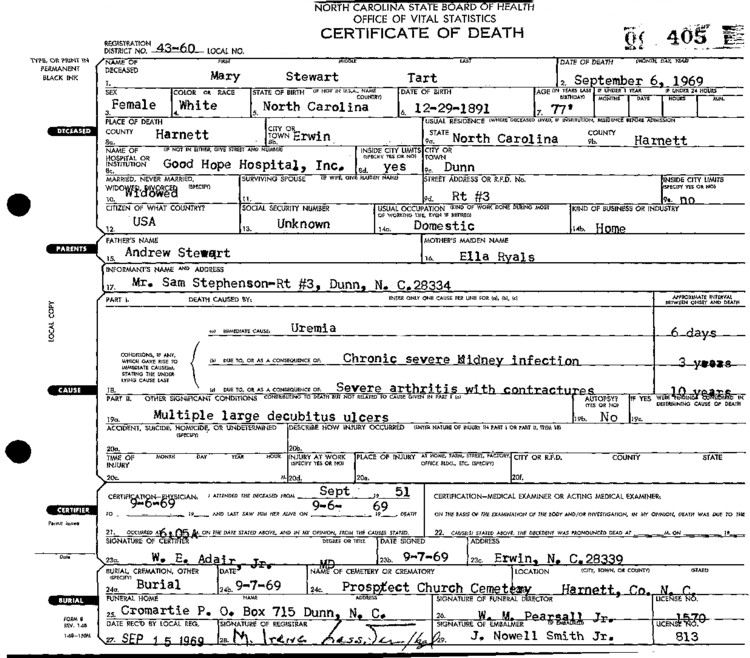 NORTH CAROLINA STATE BOARD OF HEALTH
OFFICE OF VITAL STATISTICS
CERTIFICATE OF DEATH
405
REGISTRATION DISTRICT NO. 43-60 LOCAL NO.
TYPE, OR PRINT IN PERMANENT BLACK INK
NAME OF DECEASED FIRST MIDDLE LAST DATE OF DEATH (MONTH, DAY, YEAR)
1. Mary Stewart Tart 2. September 6, 1969
SEX COLOR OR RACE STATE OF BIRTH (IF NOT IN U.S.A., NAME COUNTRY) DATE OF BIRTH AGE (IN YEARS LAST BIRTHDAY) IF UNDER 1 YEAR IF UNDER 24 HOURS
MONTHS DAYS HOURS MIN.
3. Female 4. White 5. North Carolina 6. 12-29-1891 7. 77
DECEASED
PLACE OF DEATH USUAL RESIDENCE (WHERE DECEASED LIVED, IF INSTITUTION, RESIDENCE BEFORE ADMISSION
COUNTY CITY OR TOWN STATE COUNTY
8a. Harnett 8b. Erwin 9a. North Carolina 9b. Harnett
NAME OF HOSPITAL OR INSTITUTION IF NOT IN EITHER, GIVE STREET AND NUMBER INSIDE CITY LIMITS (SPECIFY YES OR NO) CITY OR TOWN
8c. Good Hope Hospital, Inc. 8d. yes 9c. Dunn
MARRIED, NEVER MARRIED, WIDOWED, DIVORCED (SPECIFY) SURVIVING SPOUSE IF WIFE, GIVE MAIDEN NAME STREET ADDRESS OR R.F.D. No. INSIDE CITY LIMITS (SPECIFY YES OR NO)
10. Widowed 11. 9d. Rt #3 9e. no
CITIZEN OF WHAT COUNTRY? SOCIAL SECURITY NUMBER USUAL OCCUPATION (KIND OF WORK DONE DURING MOST OF WORKING LIFE, EVEN IF RETIRED) KIND OF BUSINESS OR INDUSTRY
12. USA 13. Unknown 14a. Domestic 14b. Home
PARENTS
FATHER'S NAME MOTHER'S MAIDEN NAME
15. Andrew Stewart 16. Ella Ryals
INFORMANT'S NAME AND ADDRESS
17. Mr. Sam Stephenson-Rt #3, Dunn, N. C.28334
LOCAL COPY
PART I. DEATH CAUSED BY: ENTER ONLY ONE CAUSE PER LINE FOR (a), (b), (c) APPROXIMATE INTERVAL BETWEEN ONSET AND DEATH
(a) IMMEDIATE CAUSE: Uremia 6 days
CONDITIONS, IF ANY, WHICH GAVE RISE TO IMMEDIATE CAUSE(a), STATING THE UNDERLYING CAUSE LAST
(b) DUE TO, OR AS A CONSEQUENCE OF: Chronic severe Kidney infection 3 years
CAUSE
18. (c) DUE TO, OR AS A CONSEQUENCE OF: Severe arthritis with contractures 10 years
PART II. OTHER SIGNIFICANT CONDITIONS CONTRIBUTING TO DEATH BUT NOT RELATED TO CAUSE GIVEN IN PART I (a) AUTOPSY? (YES OR NO) IF YES WERE FINDINGS CONSIDERED IN DETERMINING CAUSE OF DEATH
19a. Multiple large decubitus ulcers 19b. No 19c.
ACCIDENT, SUICIDE, HOMICIDE, OR UNDETERMINED (SPECIFY) DESCRIBE HOW INJURY OCCURRED (ENTER NATURE OF INJURY IN PART I OR PART II, ITEM 18)
20a. 20b.
TIME OF INJURY MONTH DAY YEAR HOUR INJURY AT WORK (SPECIFY YES OR NO) PLACE OF INJURY AT HOME, FARM, STREET, FACTORY, OFFICE BLDG., ETC. (SPECIFY) CITY OR R.F.D. COUNTY STATE
20c. M. 20d. 20e. 20f.
CERTIFICATION—PHYSICIAN: I ATTENDED THE DECEASED FROM Sept 19 51 CERTIFICATION—MEDICAL EXAMINER OR ACTING MEDICAL EXAMINER:
CERTIFIER
TO 9-6-69 19 AND LAST SAW HIM HER ALIVE ON 9-6- 19 69 DEATH ON THE BASIS OF THE EXAMINATION OF THE BODY AND/OR INVESTIGATION, IN MY OPINION, DEATH WAS DUE TO THE
Permit Issued
21. OCCURRED AT 6:05A ON THE DATE STATED ABOVE, AND IN MY OPINION, FROM THE CAUSES STATED. 22. CAUSE(S) STATED ABOVE. THE DECEDENT WAS PRONOUNCED DEAD AT M. ON 19
Date
SIGNATURE OF CERTIFIER DEGREE OR TITLE DATE SIGNED ADDRESS
23a. W. E. Adair, Jr. MD 23b. 9-7-69 23c. Erwin, N. C.28339
BURIAL, CREMATION, OTHER (SPECIFY) DATE NAME OF CEMETERY OR CREMATORY LOCATION (CITY, TOWN, OR COUNTY) (STATE)
24a. Burial 24b. 9-7-69 24c. Prospect Church Cemetery Harnett, Co. N. C.
BURIAL
FUNERAL HOME NAME ADDRESS SIGNATURE OF FUNERAL DIRECTOR LICENSE NO.
25. Cromartie P. O. Box 715 Dunn, N. C. 26. W. M. Pearsall Jr. 1570
FORM 8
DATE REC'D BY LOCAL REG. SIGNATURE OF REGISTRAR SIGNATURE OF EMBALMER IF EMBALMED LICENSE NO.
27. SEP 15 1969 28. M. Irene 29. J. Nowell Smith Jr. 813